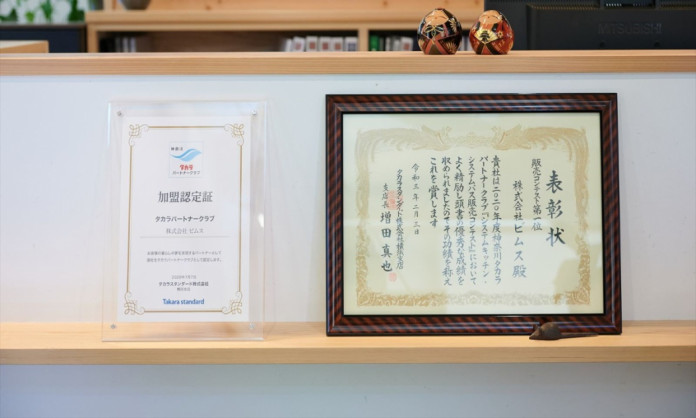 MITSUBISHI
タカラ
パートナークラブ
加盟認定証
タカラパートナークラブ
株式会社 ビムス
タカラスタンダード株式会社
Takara standard
表彰状
販売コンテスト第一位
株式会社ビムス殿
貴社は二〇二〇年度神奈川タカラ
パートナークラブ「システムキッチン・
システムバス販売コンテスト」において
よく精励し頭書の優秀な成績を
収められましたのでその功績を称え
これを賞します
令和三年二月三日
タカラスタンダード株式会社横浜支店
支店長 増田真也